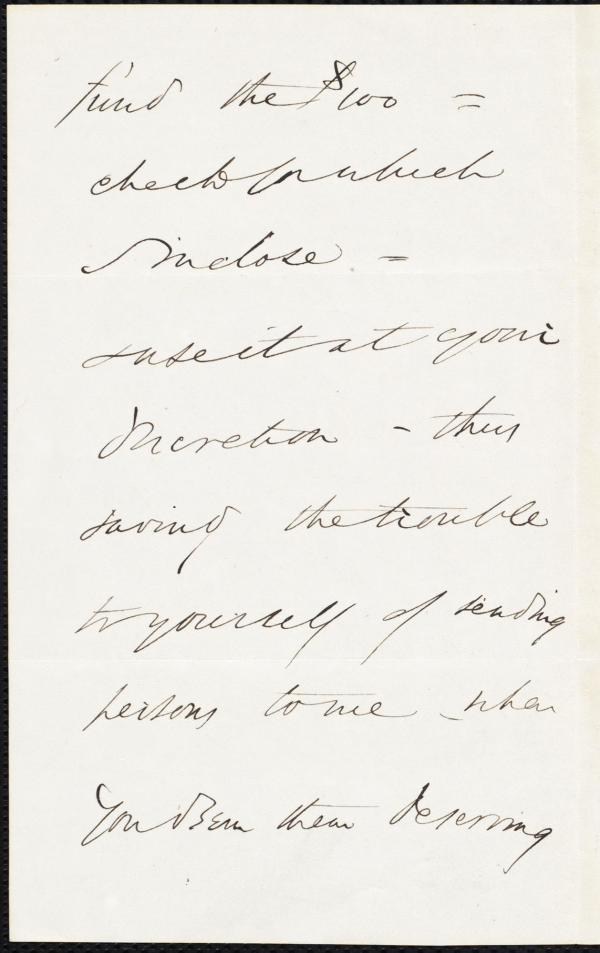 fund the $100 =
check for which
I inclose -
& use it at your
discretion - thus
saving the trouble
to yourself of sending
persons to me - when
you deem them deserving